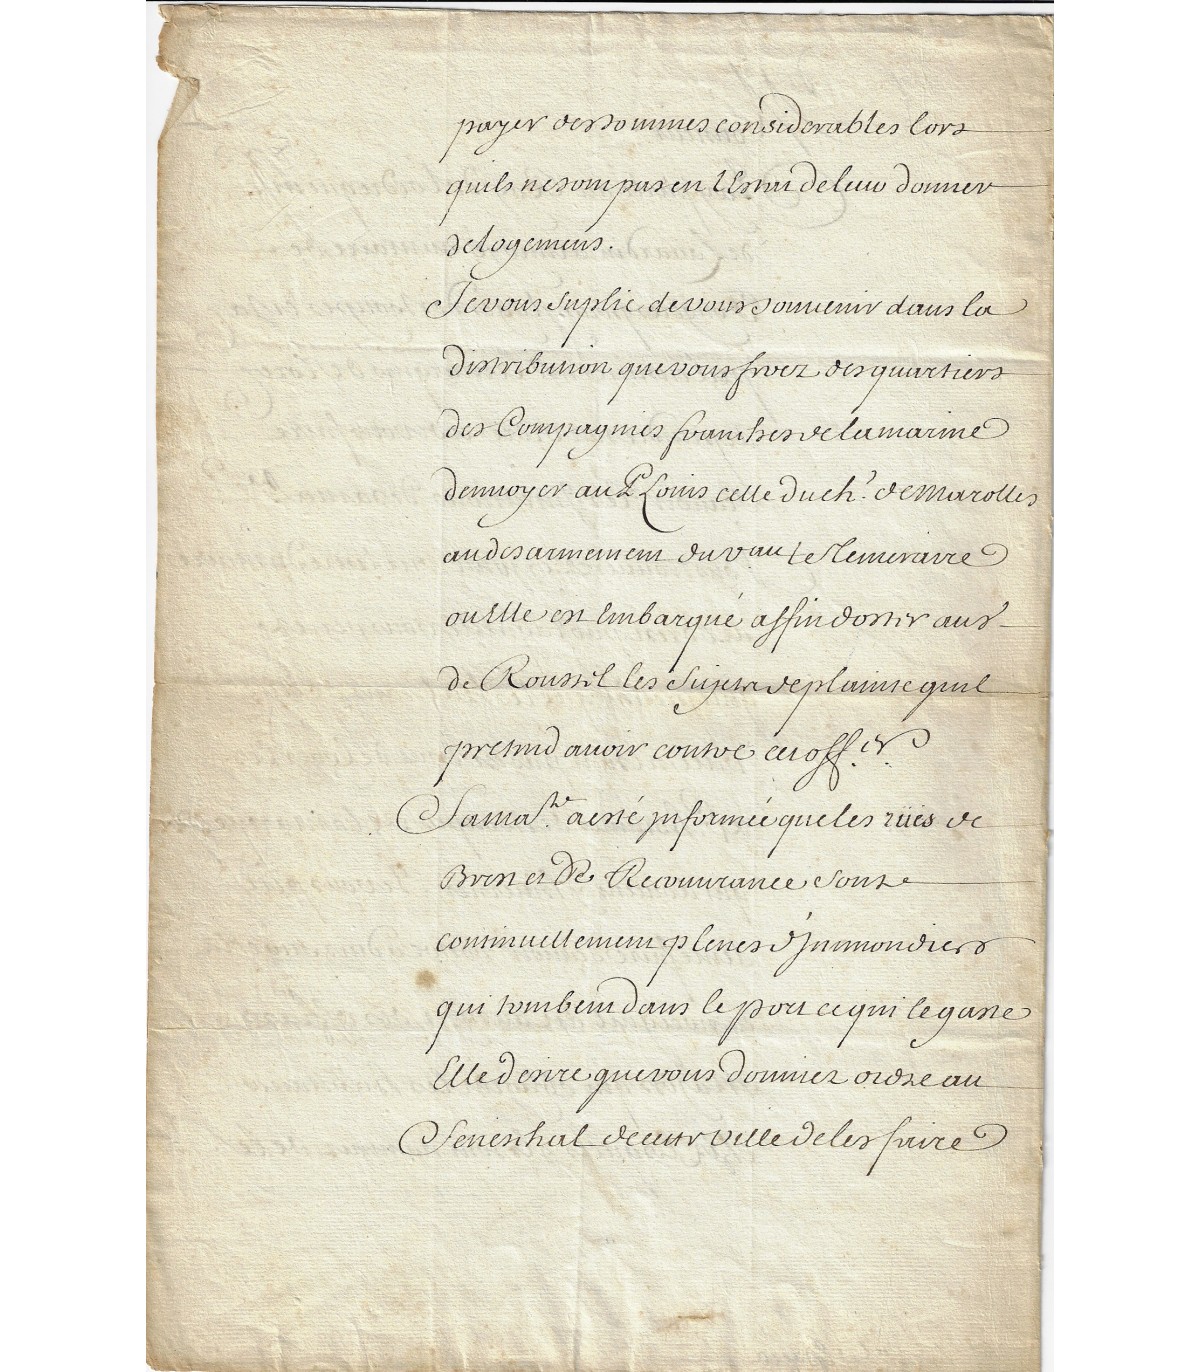 payer des sommes considerables lors
quils ne sont pas en Estat de leur donner
de logemens.
Je vous suplie de vous souvenir dans la
distribution que vous ferez des quartiers
des Compagnies franches de la marine
d'envoyer au P.t Louis celle du ch.r de Marolles
au desarmement du v.au le Temeraire
ou Elle est Embarqué affin doster au s.r
de Roussel les sujets de plainte quil
pretend avoir contre cet off.er.
Sa ma.té a esté informée que les rües de
Brest et de Recouvrance sont
continuellement plenes d'Jmmondices
qui tombent dans le port ce qui le gaste
Elle desire que vous donniez ordre au
Seneshal de cette ville de les faire